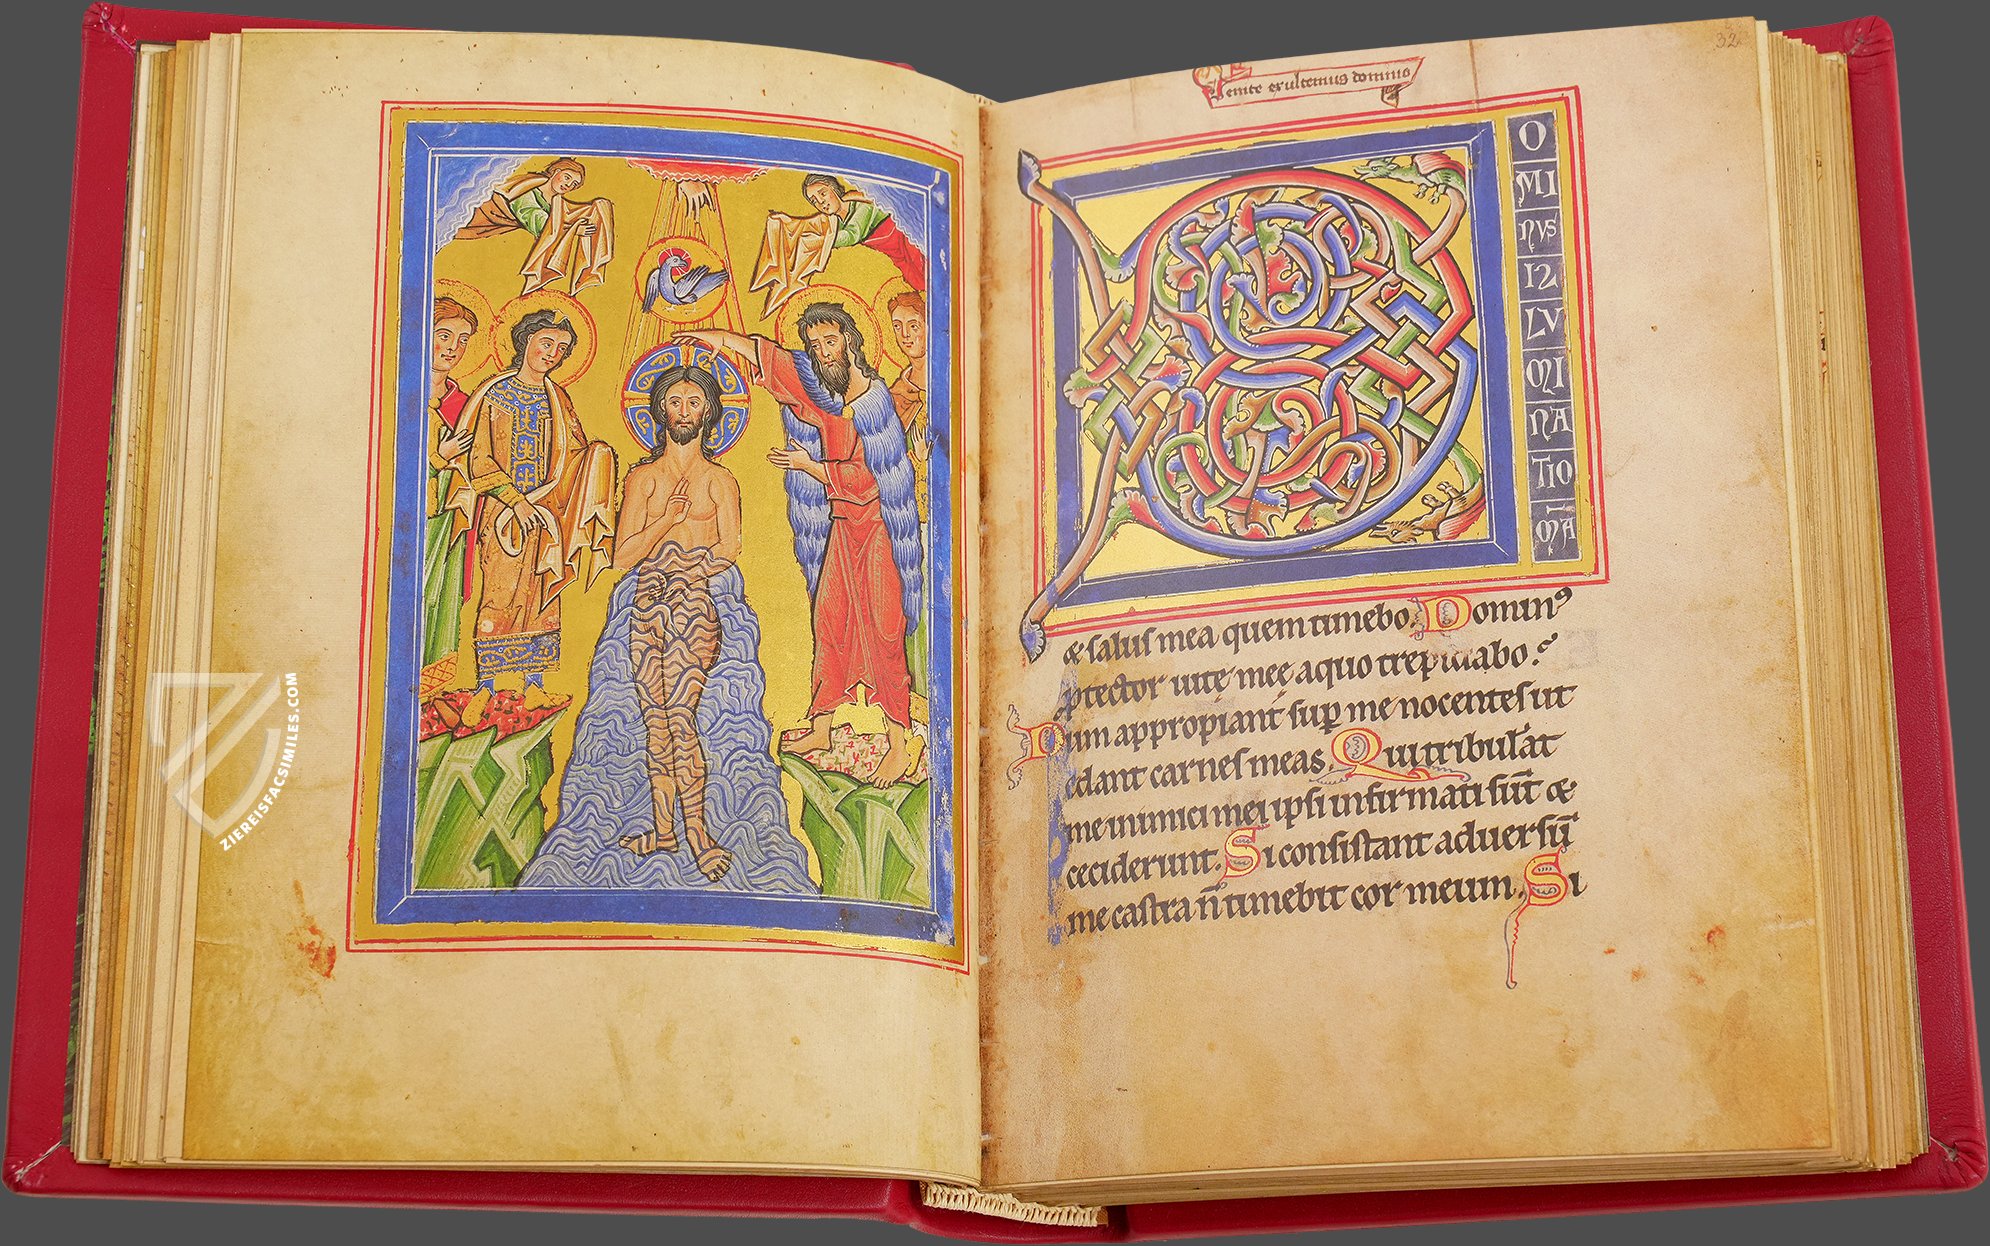 ZIEREISFACSIMILES.COM
32
Venite exultemus domino
D
O
MI
NVS
IL
LV
MI
NA
TIO
MA
& saluſ mea quem timebo. Dominꝰ
ꝓtector uitę męę aquo trepidabo.
Dum appropiant ſuꝑ me nocenteſ ut
edant carneſ meas. Qui tribulāt
me inimici mei ipſi infirmati ſūt &
ceciderunt. Si conſiſtant aduerſū
me caſtra n̄ timebit cor meum. Si